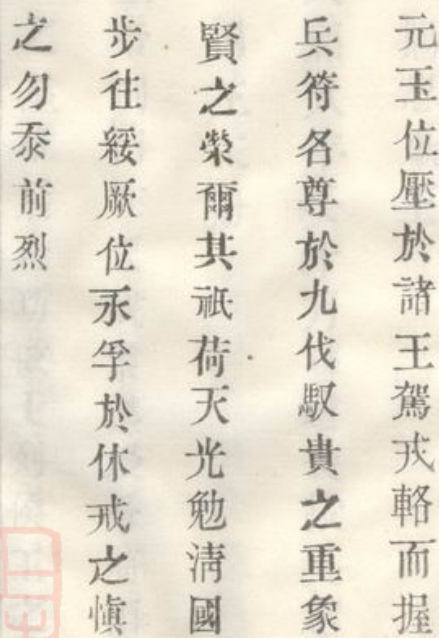 元玉位壓於諸王駕戎輅而握
兵符名尊於九伐馭貴之重象
賢之榮爾其祇荷天光勉淸國
步往綏厥位永孚於休戒之愼
之勿忝前烈